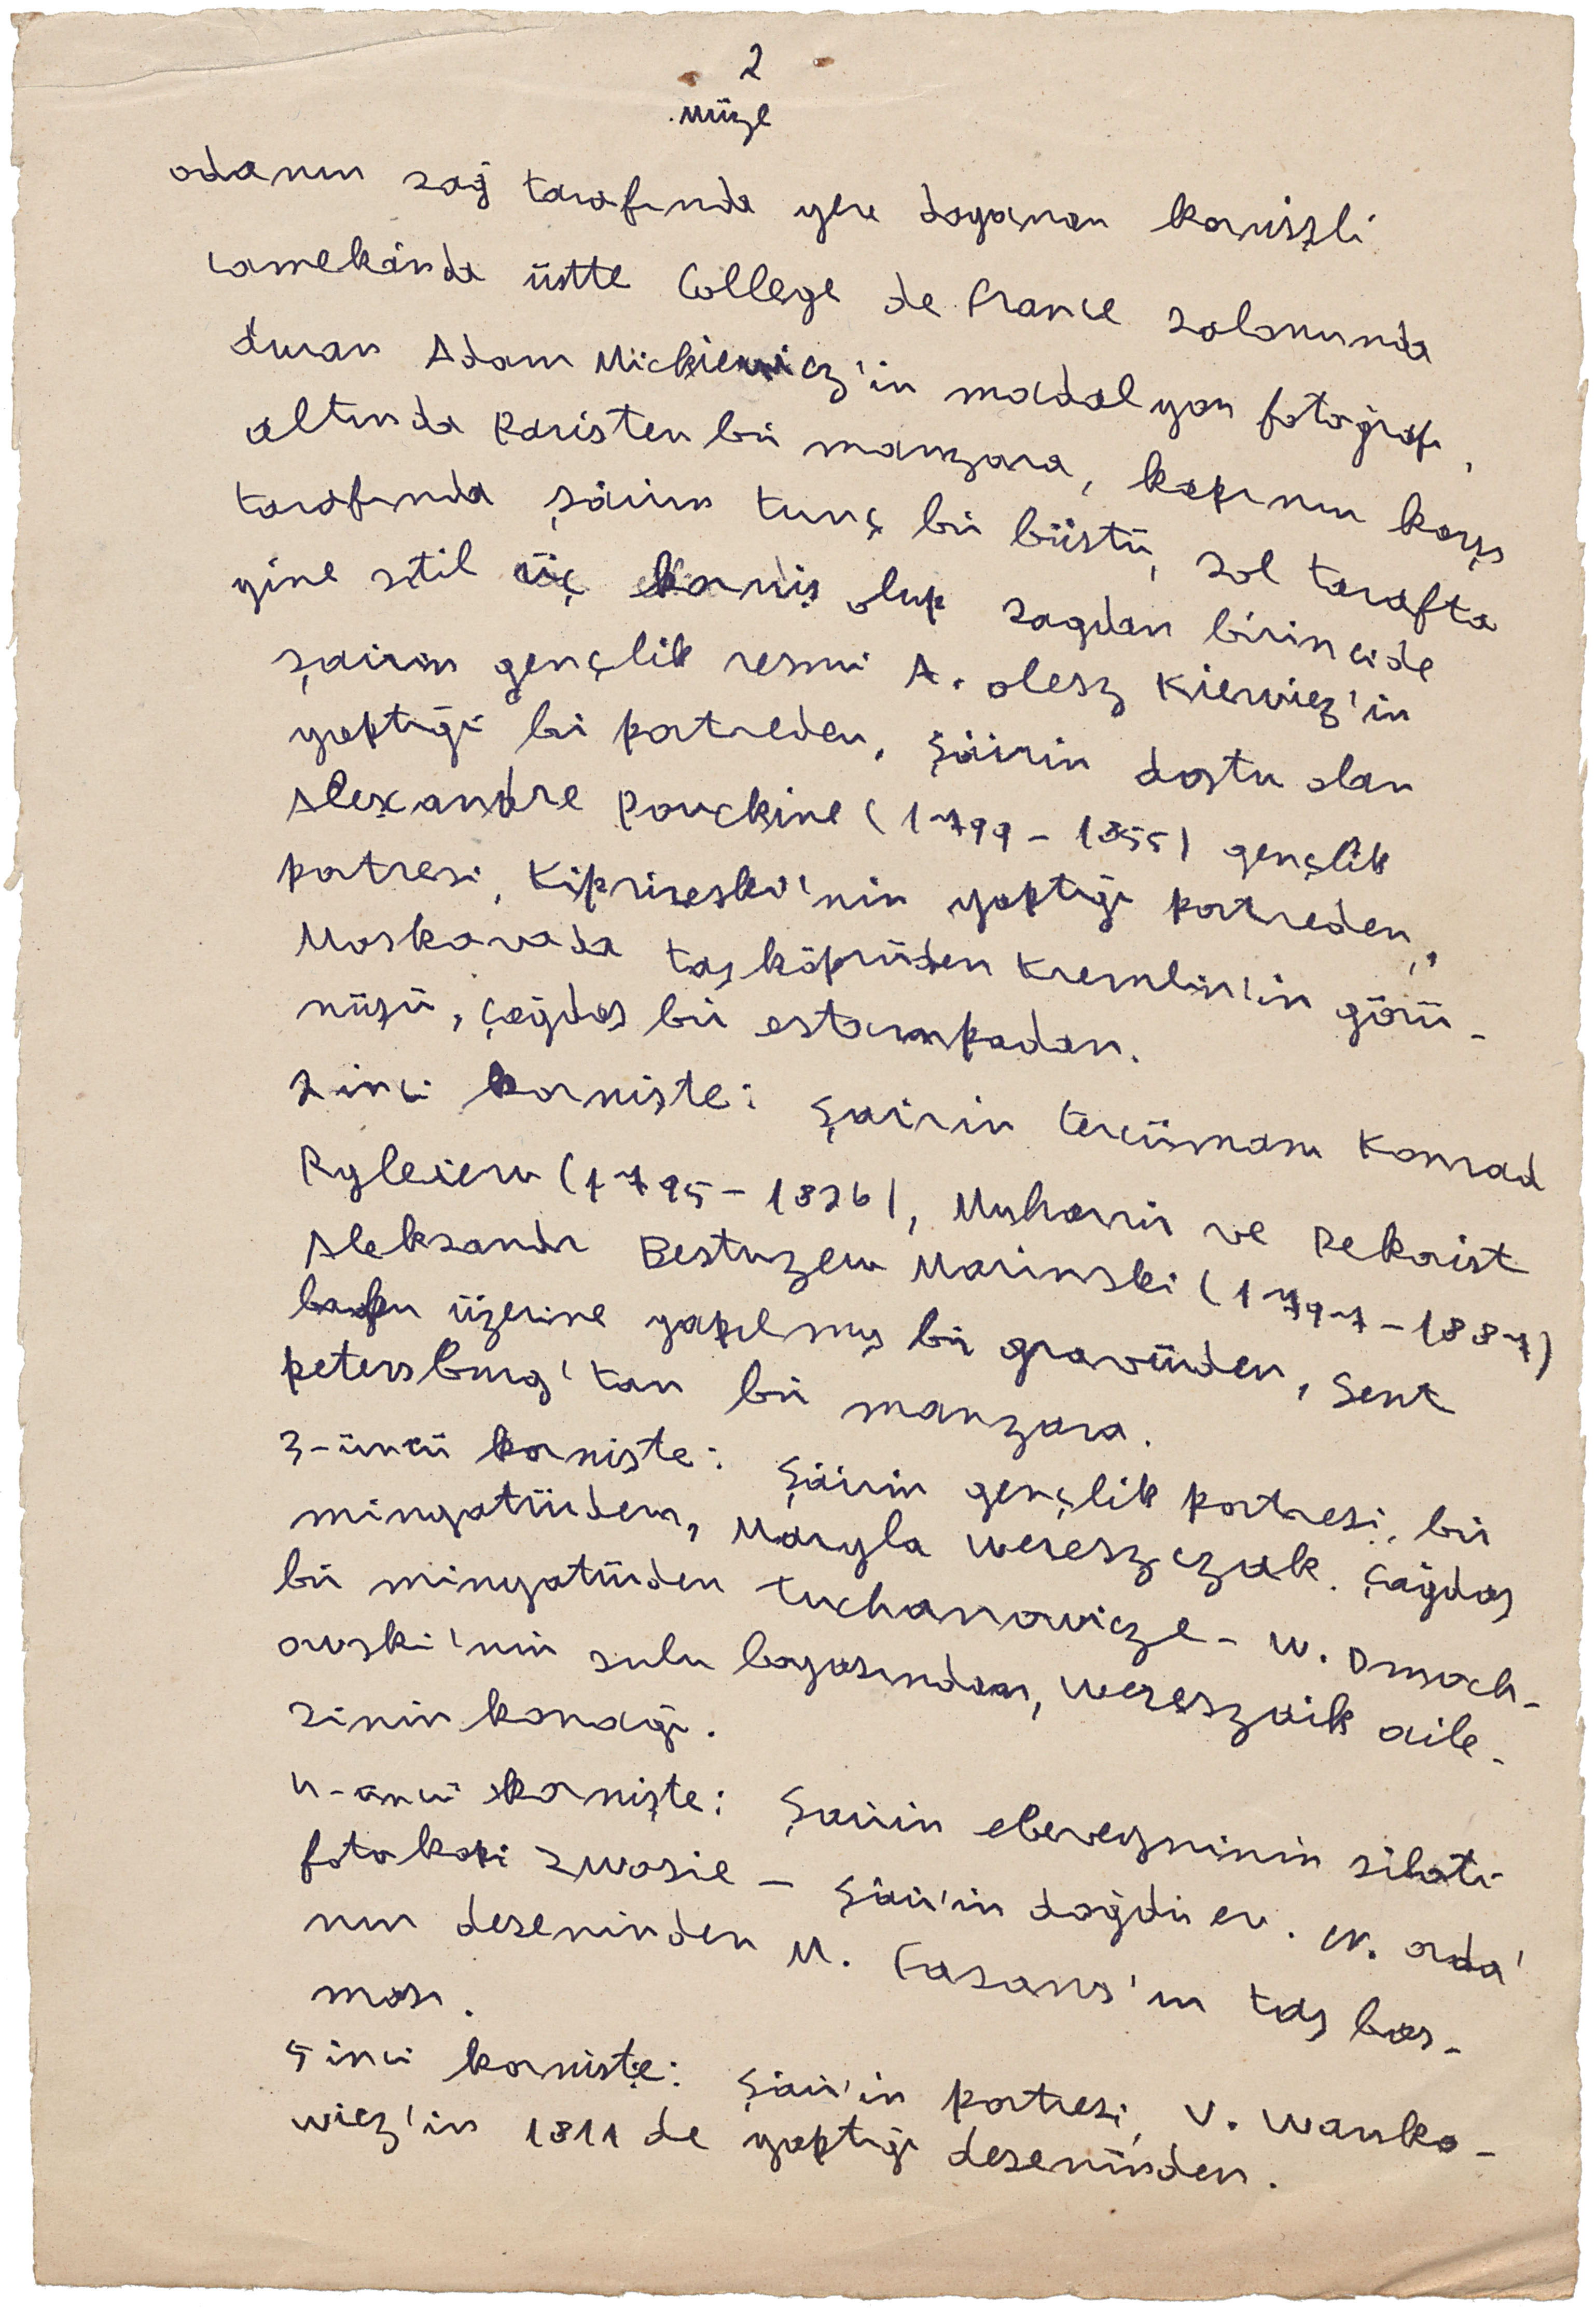 2
müze
odanın sağ tarafında yere dayanan kornişli
camekânda üstte College de France salonunda
duran Adam Mickiewicz'in madalyon fotoğrafı,
altında Paristen bir manzara, kapının karşı
tarafında şâirin tunç bir büstü, sol tarafta
yine stil üç korniş olup sagdan birincide
şairin gençlik resmi A. olesz Kiewiez'in
yaptığı bir portreden, şâirin dostu olan
Alexandre Pouckine (1799 - 1855) gençlik
portresi, Kipriseski'nin yaptığı portreden,
Moskovada taşköprüden Kremlin'in görü-
nüşü, çağdaş bir estampadan.
2 inci kornişte: Şairin tercümanı Konrad
Ryleiew (1795 - 1826), Muharrir ve Dekarist
Aleksandr Bestuzew Marinski (1797 - 1837)
üzerine yapılmış bir gravürden, Sent
petersburg'tan bir manzara.
3-üncü kornişte: Şâirin gençlik portresi, bir
minyatürden, Maryla Wereszczak. Çağdaş
bir minyatürden Tuchanowicze - W. Dmoch-
owski'nin sulu boyasından, Wereszaik aile-
sinin konağı.
4-üncü kornişte: Şairin ebeveyninin silati
fotokopi Zwosie - Şâir'in doğdu ev. N. orda'
nın deseninden M. Fasans'ın taş bas-
ması.
5 inci kornişte: Şâir'in portresi, V. Wanko-
wiez'in 1811 de yaptığı deseninden.